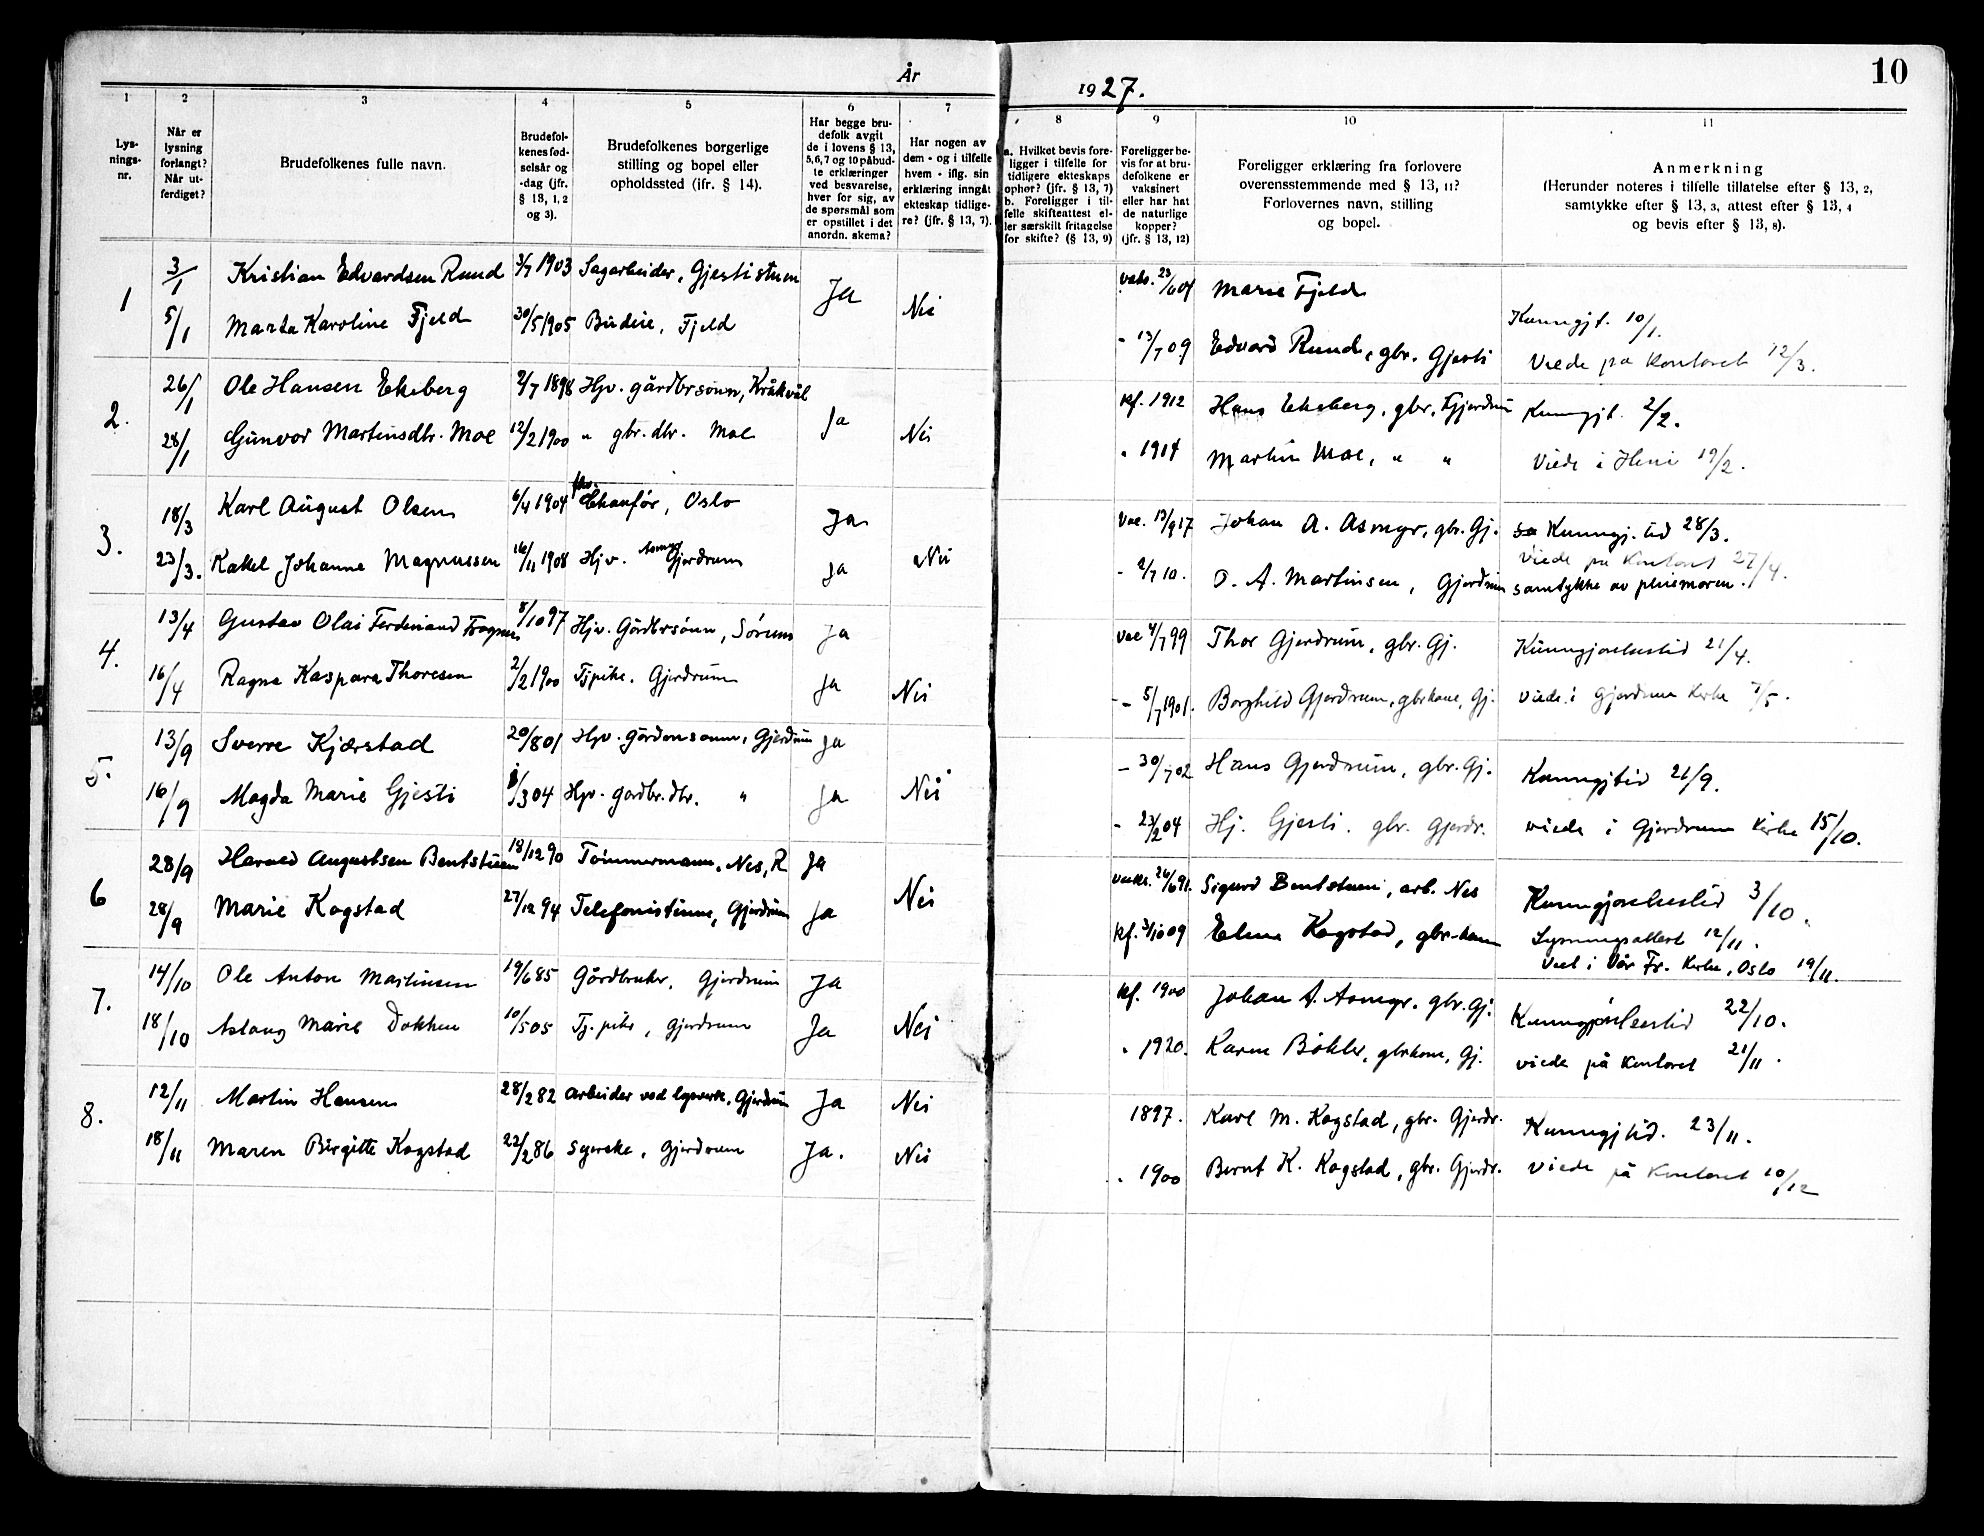 År
1927.
10
1
2
3
4
5
6
7
8
9
10
11
Lys-
nings-
nr.
Når er
lysning
forlangt?
Når ut-
ferdiget?
Brudefolkenes fulle navn.
Brudefol-
kenes fød-
selsår og
-dag (jfr.
§ 13, 1, 2
og 3).
Brudefolkenes borgerlige
stilling og bopel eller
opholdssted (ifr. § 14).
Har begge bru-
defolk avgit
de i lovens § 13,
5,6,7 og 10 påbud-
te erklæringer
ved besvarelse,
hver for sig, av
de spørsmål som
er opstillet i det
anordn. skema?
Har nogen av
dem - og i tilfelle
hvem - iflg. sin
erklæring inngåt
ekteskap tidlige-
re? (jfr. § 13, 7).
a. Hvilket bevis fore-
ligger i tilfelle for
tidligere ekteskaps
ophør? (jfr. § 13, 7)
b. Foreligger i til-
felle skifteattest el-
ler særskilt fritagelse
for skifte? (§ 13, 9)
Foreligger be-
vis for at bru-
defolkene er
vaksinert
eller har hat
de naturlige
kopper?
(jfr. § 13, 12)
Foreligger erklæring fra forlovere
overensstemmende med § 13, 11?
Forlovernes navn, stilling
og bopel.
Anmerkning
(Herunder noteres i tilfelle tillatelse efter § 13, 2,
samtykke efter § 13, 3, attest efter § 13, 4
og bevis efter § 13, 8).
1 3/1 Kristian Edvardsen Ruud 3/7 1903 Sagarbeider, Gjestistuen Ja Nei Marie Fjeld
5/1 Marta Karoline Fjeld 30/5 1905 Budeie, Fjeld - 13/7 09 Edvard Ruud, gbr. Gjesti
Kunngjt. 10/1.
Viede på kontoret 12/3.
2. 26/1 Ole Hansen Ekeberg 2/7 1898 Hjv. gårdbrsønn, Kråkvål Ja kf. 1912 Hans Ekeberg, gbr, Gjerdrum Kunngjt. 2/2.
28/1 Gunvor Martinsdtr. Moe 12/2 1900 " gbr. dtr. Moe Nei " 1914 Martin Moe, " " Viede i Heni 19/2.
3. 18/3 Karl August Olsen 6/4 1904 Chauför, Oslo Ja Vac. 13/9 17 Johan A. Asmyr, gbr. Gj. Kunngj. tid 28/3.
Viede på kontoret 27/4.
23/3. Rakel Johanne Magnussen 16/11 1908 Hjv. Asmyr Gjerdrum Ja Nei - 2/7 10. O. A. Martinsen, Gjerdrum samtykke av pleiemoren.
4. 13/4 Gustav Olai Ferdinand 8/10 97 Hjv. Gårdbrsønn, Sørum Ja vac 4/7 99 Thor Gjerdrum, gbr. Gj. Kunngjørelsestid 21/4.
16/4 Ragna Kaspara Thoresen 2/2 1900 Tjpike. Gjerdrum Ja Nei - 5/7 1901. Borghild Gjerdrum, gbrkone, Gj. viede i Gjerdrum kirke 7/5.
5. 13/9 Sverre Kjærstad 20/8 01 Hjv. gårdmsønn, Gjerdrum Ja - 30/7 02 Hans Gjerdrum, gbr. Gj. Kunngjtid 21/9.
16/9 Magda Marie Gjesti 3 04 Hjv. gardbr. dtr. " Ja Nei - 23/2 04 Hj. Gjesti. gbr. Gjerdr. viede i Gjerdrum kirke 15/10.
6 28/9 Harald Augustsen Bentstuen 18/12 90 Tömmermann, Nes, R Ja vaks. 24/6 91. Sigurd Bentstuen, arb. Nes Kunngjørelsestid 3/10.
28/9 Marie Kogstad 27/12 94 Telefonistinne, Gjerdrum Ja Nei kf. 3/10 09 Elina Kogstad, gbr-kone Lysningsattest 12/11.
Viet i Vår Fr. kirke, Oslo 19/11.
7. 14/10 Ole Anton Martinsen 19/6 85 Gårdbruker, Gjerdrum Ja kf. 1900 Johan A. Asmyr. gbr. Gj. Kunngjørelsestid 22/10.
18/10 Aslaug Marie Dokken 10/5 05 Tj. pike, Gjerdrum Ja Nei " 1920. Karen Bøhler, gbrkone, Gj. viede på kontoret 21/11.
8. 12/11 Martin Hansen 28/2 82 Arbeider ved lysverk, Gjerdrum Ja Nei 1897. Karl M. Kogstad, gbr. Gjerdr. Kunngjtid. 23/11.
18/11 Maren Birgitte Kogstad 22/2 86 syerske, Gjerdrum Ja. Nei " 1900 Bernt K. Kogstad, gbr. Gjerdr. Viede på kontoret 10/12